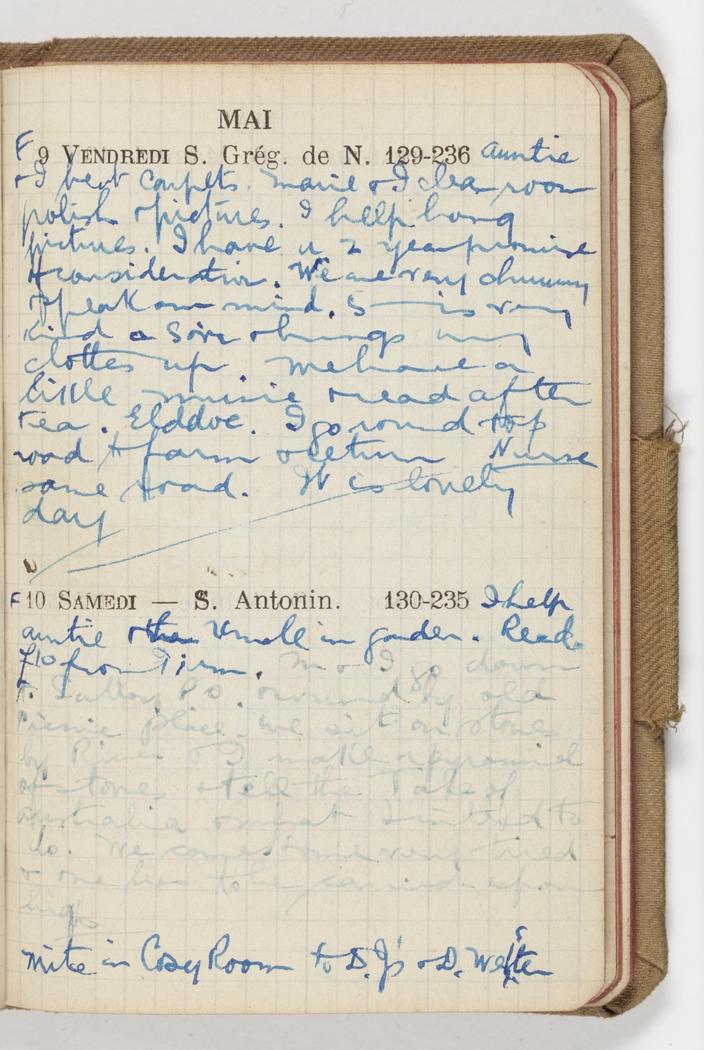 MAI
F 9 VENDREDI S. Grég. de N. 129-236 Auntie
& I beat carpets. Marie & I clean room
polish & pictures. I help hang
pictures. I have a 2 year promise
& consideration. We are very chummy
& speak our mind. S— is very
kind a & hangs my
clothes up. We have a
little music & read after
tea. I go round top
road to farm & return Nurse
same road. It is lovely
day
F 10 SAMEDI — S. Antonin. 130-235 I help
auntie & then Uncle in garden. Read
£10 from Firm. M & I go down
to P.O. & round by old
picnic place. We sit on stones
by River & I make a pyramid
of stones & tell the Tale of
Australia & what I intend to
do. We come home very tired
& one has to be carried upon
hips
Write in Cosy Room to D.J's & D. Westen